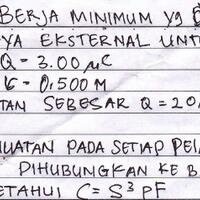 BERJA MINIMUM yg
YA EKSTERNAL UNT
Q = 3.00 μC
= 0.500 M
TAN SEBESAR Q = 20,
MUATAN PADA SETIAP PE
DIHUBUNGKAN KE B
ETAHUI C = S³ PF